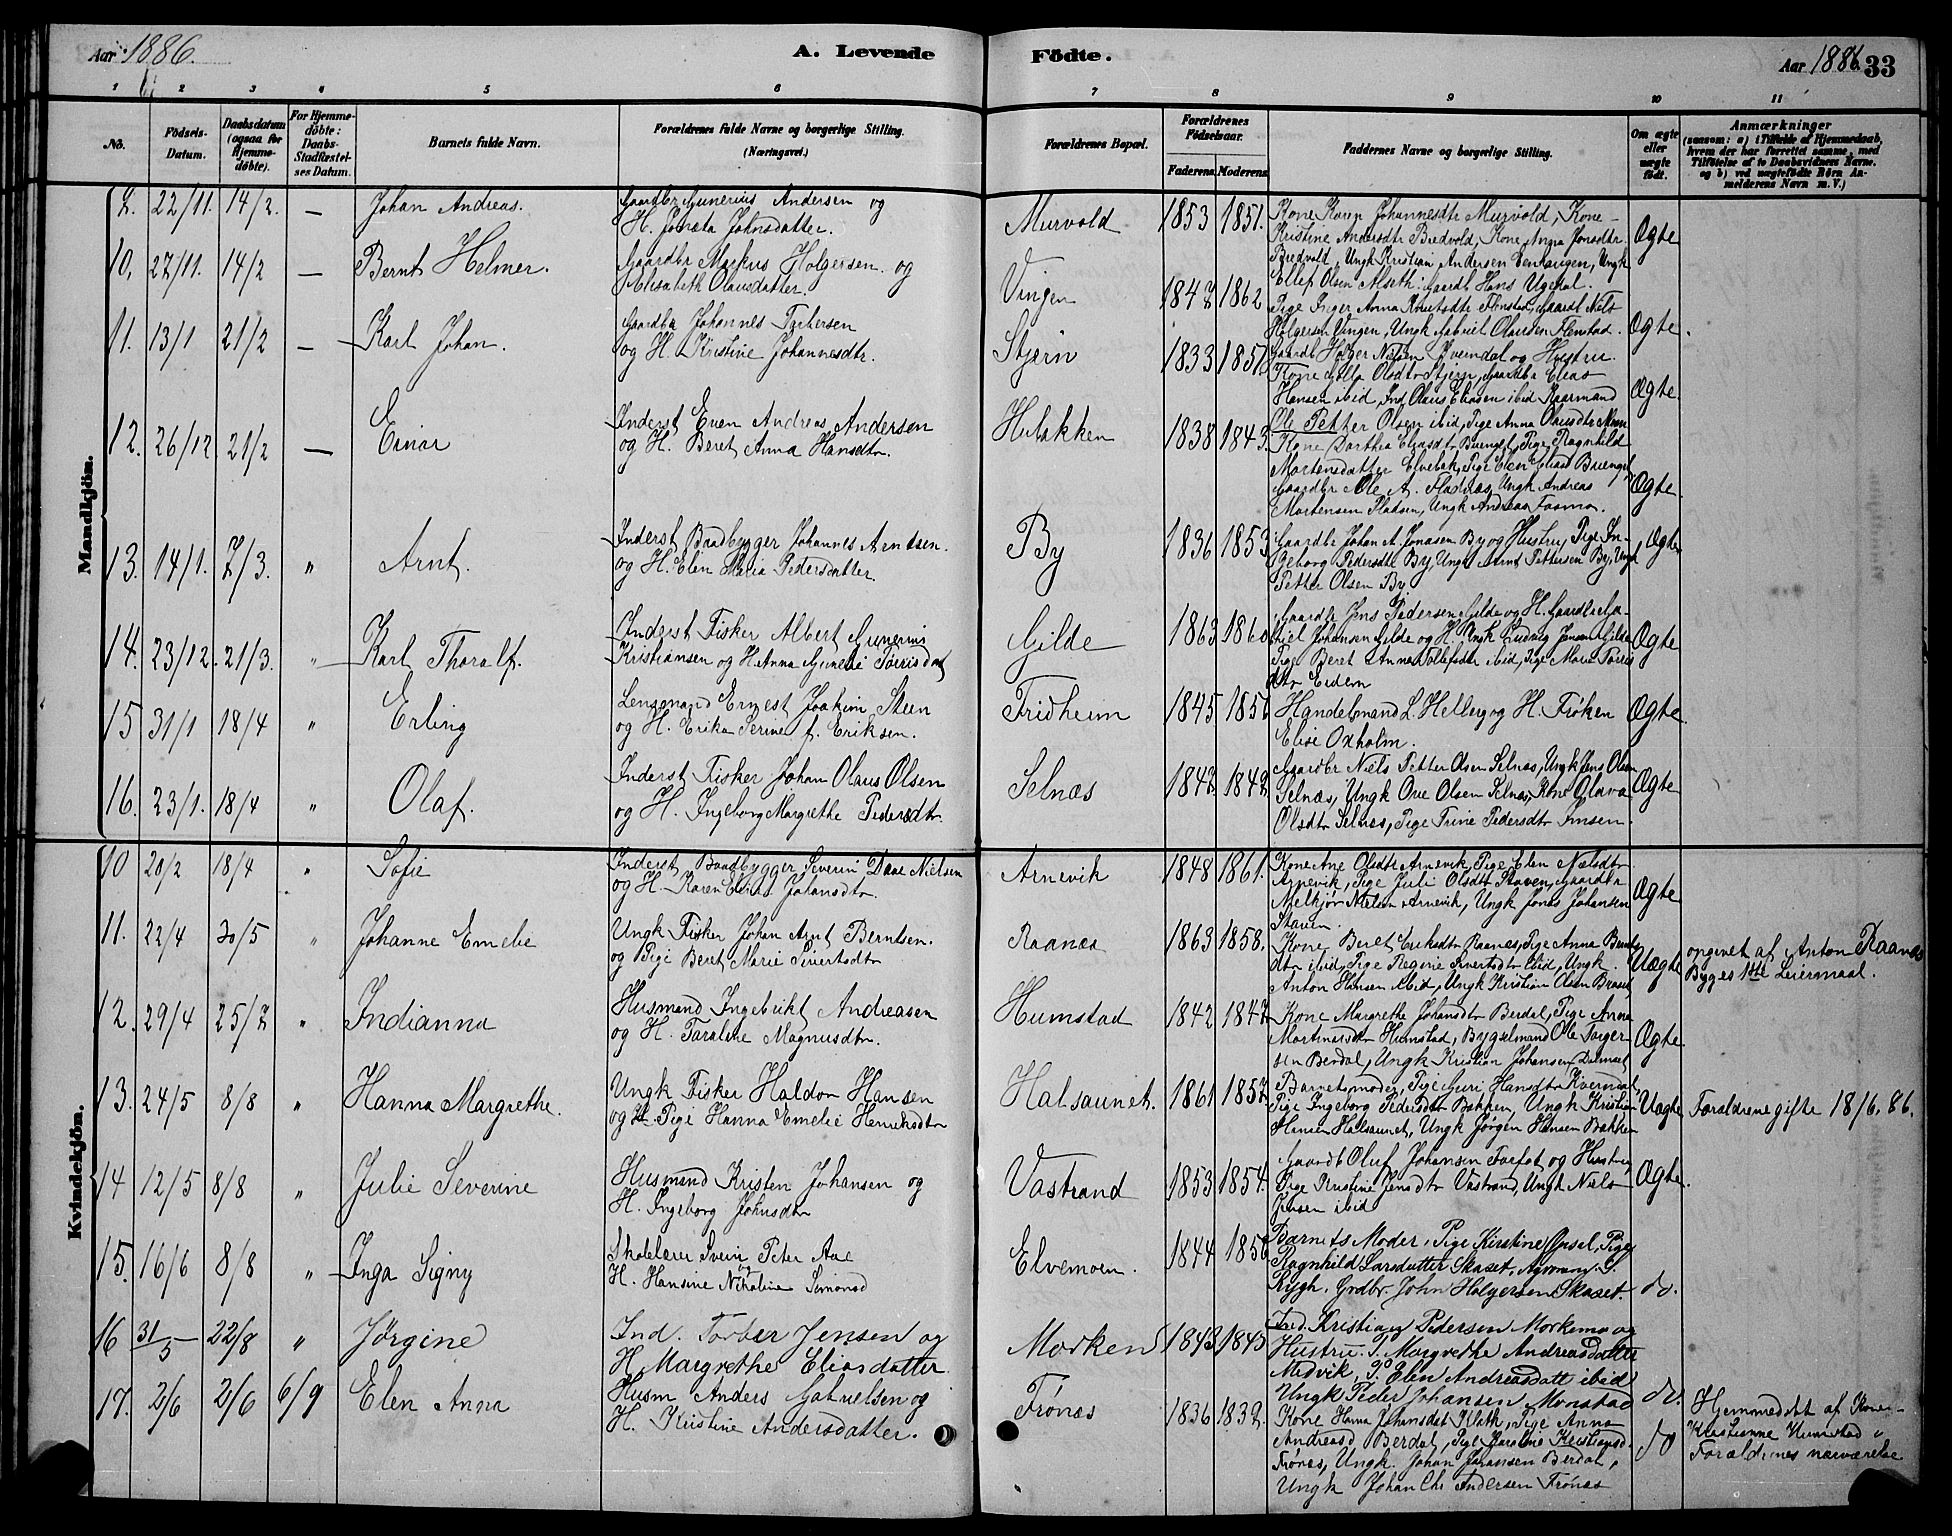 Aar 1886.
A. Levende
Födte.
Aar 1886
33
1 2 3 4 5 6
7 8 9 10 11
No.
Födsels-
Datum.
Daabsdatum
(ogsaa for
Hjemme-
döbte).
For Hjemme-
döbte:
Daabs-
Stadfæstel-
ses Datum.
Barnets fulde Navn.
Forældrenes fulde Navne og borgerlige Stilling.
(Næringsvei.)
Forældrenes Bopæl.
Forældrenes
Födselsaar.
Faderens. Moderens.
Faddernes Navne og borgerlige Stilling.
Om ægte
eller
uægte
födt.
Anmærkninger
(saasom: a) i Tilfælde af Hjemmedaab,
hvem der har forrettet samme, med
Tilföielse af to Daabsvidners Navne.
og b) ved uægtefödte Börn An-
melderens Navn m. V.)
Mandkjön.
22/11. 14/2. — Johan Andreas.
Gaardbr Gunerius Andersen og
H. Johnsdatter.
Murvold 1853 1851.
Kone Karen Johannesdtr Murvold, Kone
Kristine Andersdtr Bredvold, Kone Anna Jonsdtr
Bredvold, Ungk Kristian Andersen Ungk
Ægte
10. 27/11. 14/2 — Bernt Helmer.
Gaardbr Markus Holgersen og
Elisabeth Olausdatter.
Vingen 1847 1862
Ellef Olsen Gaardb Hans
Pige Inger Anna Knutsdtr Gaardb Nils
Holgersen Vingen, Ungk Gabriel Olausen
Ægte.
11. 13/1 21/2 — Karl Johan.
Gaardbr Johannes
og H. Kristine Johannesdtr.
Stjern 1833 1851
Gaardb Holger Nilsen og Hustru
Kone Olsdtr Stjern, Gaardbr Elias
Hansen ibid, Ind Olaus Eliasen ibid
Ole Petter Olsen ibid, Pige Anna Olausdtr
Ægte.
12. 26/12 21/2 — Einar
Inderst Even Andreas Anderson
og H. Beret Anna Hansdtr.
1838 1843.
Kone Dorthea Eliasdtr Pige Ragnhild
Mortensdatter Pige Elen
Gaardbr Ole A. Ungk Andreas
Mortensen Ungk Andreas
Ægte.
13. 14/1. 7/3. " Arnt.
Inderst Baadbygger Johannes Arntsen.
og H. Elen Maria Pedersdatter
By 1836 1853
Gaardbr Johan A. Jonasen By og Hustru, Pige In-
geborg Pedersdtr By, Ungk Arnt Pettersen By, Ungk
Petter Olsen By
Ægte
14. 23/12. 21/3. " Karl Thoralf.
Inderst Fisker Albert Gunerius
Kristiansen og H. Anna
Gilde 1863 1860
Gaardbr Jens Pedersen Gilde og H.
Johansen Gilde og H. Ungk Ludvig Gilde
Pige Beret Anna ibid, Pige Marie Torris
dtr Eidem
Ægte
15 31/1 18/4 " Erling
Lensmand Ernest Joakim Steen
og H. Erika Serine f. Eriksen.
Fridheim 1845
Handelsmand L. og H. Frøken
Elise Oxholm.
Ægte.
16. 23/1. 18/4 " Olaf.
Inderst Fisker Johan Olaus Olsen
og H. Ingeborg Margrethe Pedersdtr.
Selnæs 1847
Gaardbr Niels Petter Olsen Selnæs, Ungk Jens Olsen
Selnæs, Ungk Ove Olsen Selnæs, Kone Olava
Olsdtr Selnæs, Pige Trine Pedersdtr
Ægte
Kvindekjön.
10 20/2 18/4 " Sofie
Inderst Baadbygger Severin Daae Nielsen
og H. Karen Johansdtr
Arnevik 1848 1861.
Kone Ane Olsdtr Arnevik, Pige Elen Nielsdtr
Arnevik, Pige Juli Olsdtr Staven, Gaardbr
Melkjør Nielsen Arnevik, Ungk Jonas Johansen
Staven.
Ægte
11. 22/4 30/5 " Johanne Emelie
Ungk Fisker Johan Arnt Berntsen.
og Pige Beret Marie Sivertsdtr
Raanes 1863 1858.
Kone Beret Eriksdtr Raanes, Pige Anna
dtr ibid, Pige Regine Sivertsdtr ibid, Ungk
Anton Hansen ibid, Ungk Kristian Olsen
Uægte
opgivet af Anton Raanes
Begges 1ste Leiermaal.
12. 29/4 25/7 " Indianna
Husmand Ingebrikt Andreasen
og H. Magnusdtr.
Humstad 1842 1847
Kone Margrethe Johansdtr Berdal, Pige Anna
Humstad, Bygselmand Ole Torger-
sen Berdal, Ungk Kristian Johansen
Ægte
13. 24/5 8/8 " Hanna Margrethe.
Ungk Fisker Haldor Hansen
og Pige Hanna Emelie Henriksdtr
Halsaunet. 1861 1857
Barnets moder, Pige Guri Hansdtr
Pige Ingeborg Pedersdtr Bakken, Ungk Kristian
Hansen Halsaunet, Ungk Jørgen Hansen Bakken
Uægte
Forældrene gifte 18/6. 86.
14 12/5 8/8 " Julie Severine
Husmand Kristen Johansen og
H. Ingeborg Johnsdtr
Vastrand 1853 1854.
Gaardb Oluf Johansen og Hustru,
Pige Kristine Jensdtr Vastrand, Ungk Niels
Jensen ibid
Ægte.
15. 16/6 8/8 " Inga Signy
Skolelærer Svein Peter Aae
og
H. Hansine Nikoline
Elvemoen. 1844 1856
Barnets Moder, Pige Kirstine Opsal, Pige
Ragnhild Larsdatter Skaset,
Rygh. Grdbr. John Holgersen Skaset.
do.
16 31/5 22/8 " Jørgine
Ind. Torber Jensen og
H. Margrethe Eliasdatter
Morken 1843 1843
Ind. Kristian Pedersen Morkemo og
Hustru. P. Margrethe Andreasdatter
Medvik, P. Elen Andreasdatt ibid
Ungk Peder Johansen Monstad
do.
17. 2/6 2/6 6/9 Elen Anna
Husm Anders Gabrielsen og
H. Kristine Andersdatter.
Frönes 1836 1839.
Kone Hanna Johansdat Klak, Pige Anna
Andreasd Berdal, Pige Karoline Kristiansd.
Frönes, Ungk. Johan Johansen Berdal,
Ungk Johan Chr Andersen Frönes
do
Hjemmedøbt af Kone
Kristianne Humstad i
Forældrenes nærværelse